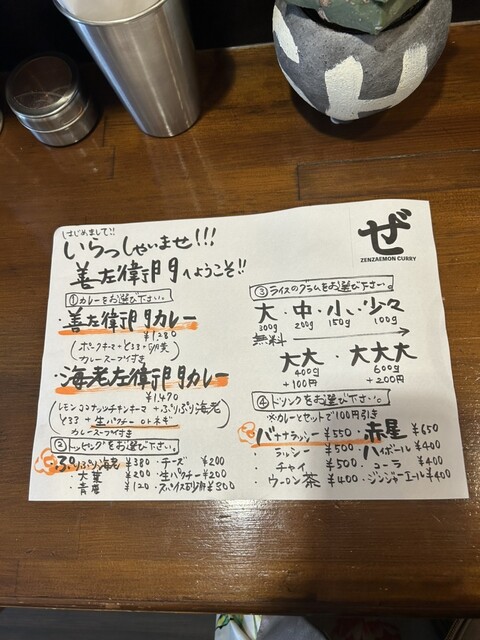 はじめまして!!
いらっしゃいませ!!!
善左衛門へようこそ!!
ぜ
ZENZAEMON CURRY
①カレーをお選び下さい。
・善左衛門カレー
¥1,280
(ポークキーマ+とろろ+卵黄)
カレースープ付き
・海老左衛門カレー
¥1,490
(レモンココナッツチキンキーマ+ぷりぷり海老)
とろろ+生パクチー or ネギ
カレースープ付き
②トッピングをお選び下さい。
・ぷりぷり海老 ¥380
・大葉 ¥200
・青唐 ¥120
・チーズ ¥200
・生パクチー ¥200
・スパイス ¥300
③ライスのグラムをお選び下さい。
大・中・小・少々
300g 200g 150g 100g
無料
大大・大大大
400g 600g
+100円 +200円
④ドリンクをお選び下さい。
※カレーとセットで100円引き
バナナラッシー ¥550・赤星 ¥650
ラッシー ¥500・ハイボール ¥400
チャイ ¥500・コーラ ¥400
ウーロン茶 ¥400・ジンジャーエール ¥400